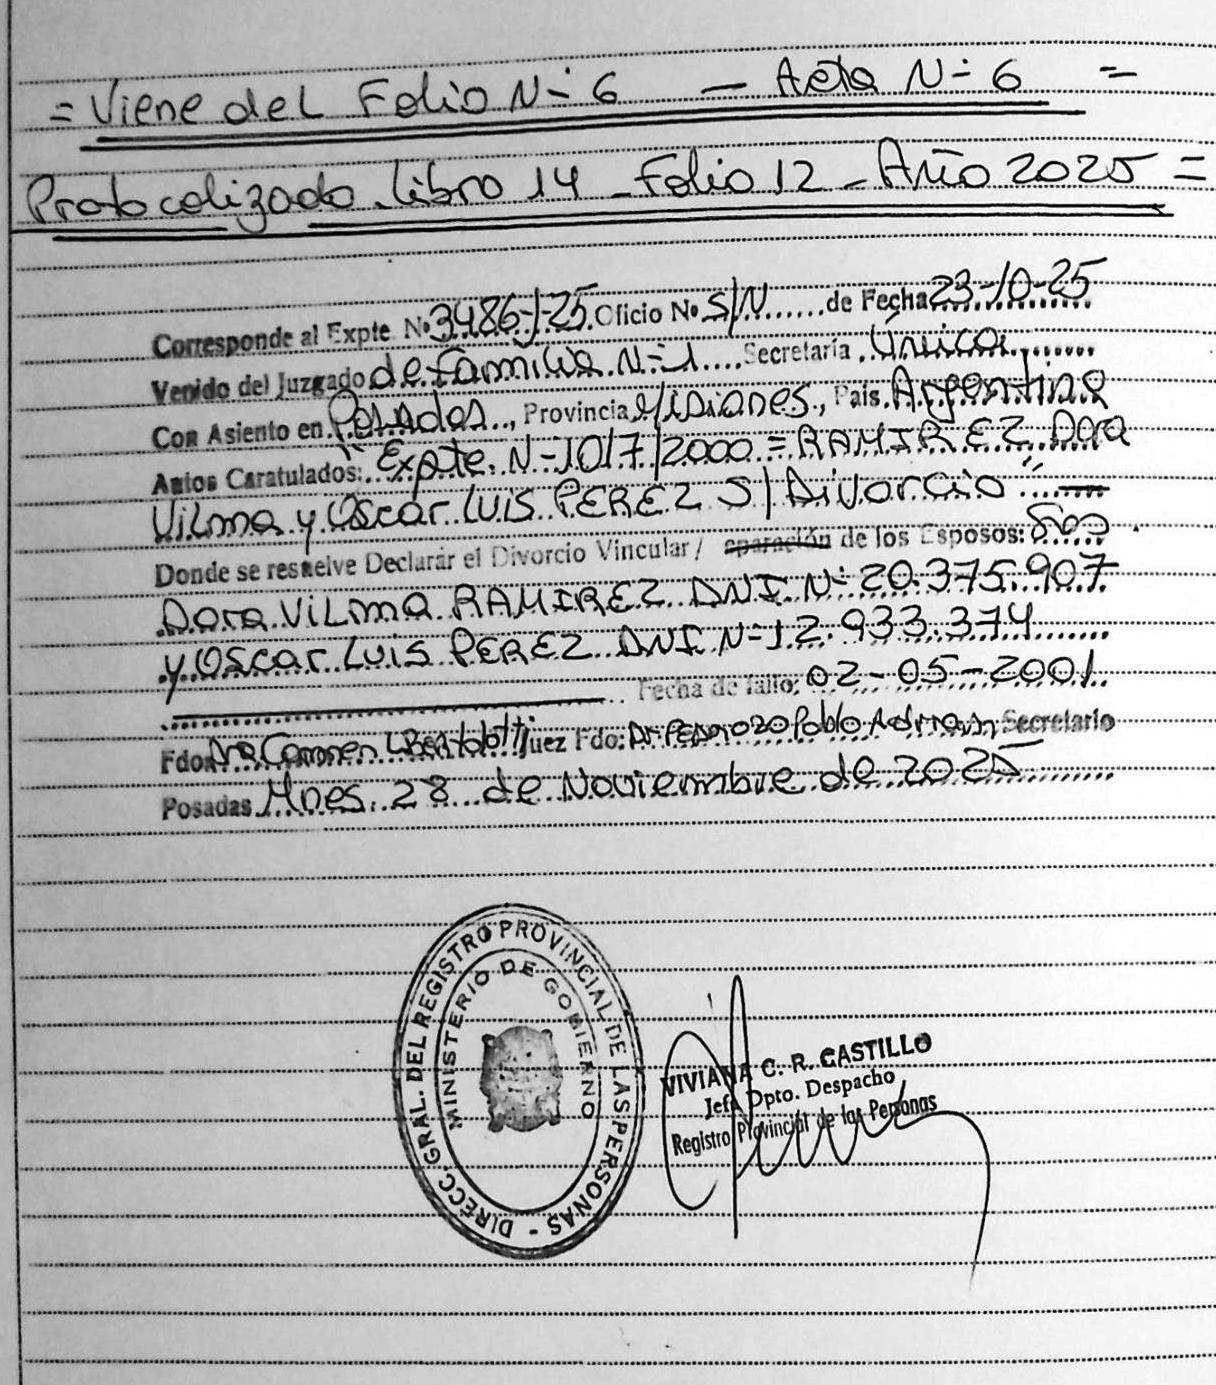 = Viene del Folio N- 6 — Acta N- 6 =
Protocolizado. Libro 14 - Folio 12 - Año 2025 =
Corresponde al Expte. Nº 3486/25. Oficio Nº S/N...... de Fecha 23-10-25
Venido del Juzgado de Familia N-1.... Secretaría. Única.......
Con Asiento en Posadas.., Provincia Misiones., País. Argentina
Autos Caratulados:.. "Expte. N-1017/2000 = RAMIREZ Dora
Vilma y Oscar Luis PEREZ S/ Divorcio"
Donde se resuelve Declarar el Divorcio Vincular / eparación de los Esposos:
Dora Vilma RAMIREZ DNI. N- 20.375.907
y Oscar Luis PEREZ DNI N-12.933.374
Fecha de fallo: 02-05-2001.
Fdo. Dra Carmen L. Bertolotti Juez Fdo: Dr Pedrozo Pablo Adrian Secretario
Posadas. Mnes. 28 de Noviembre de 2025
DIRECC. GRAL. DEL REGISTRO PROVINCIAL DE LAS PERSONAS -
MINISTERIO DE GOBIERNO
VIVIANA C. R. CASTILLO
Jefe Dpto. Despacho
Registro Provincial de las Personas